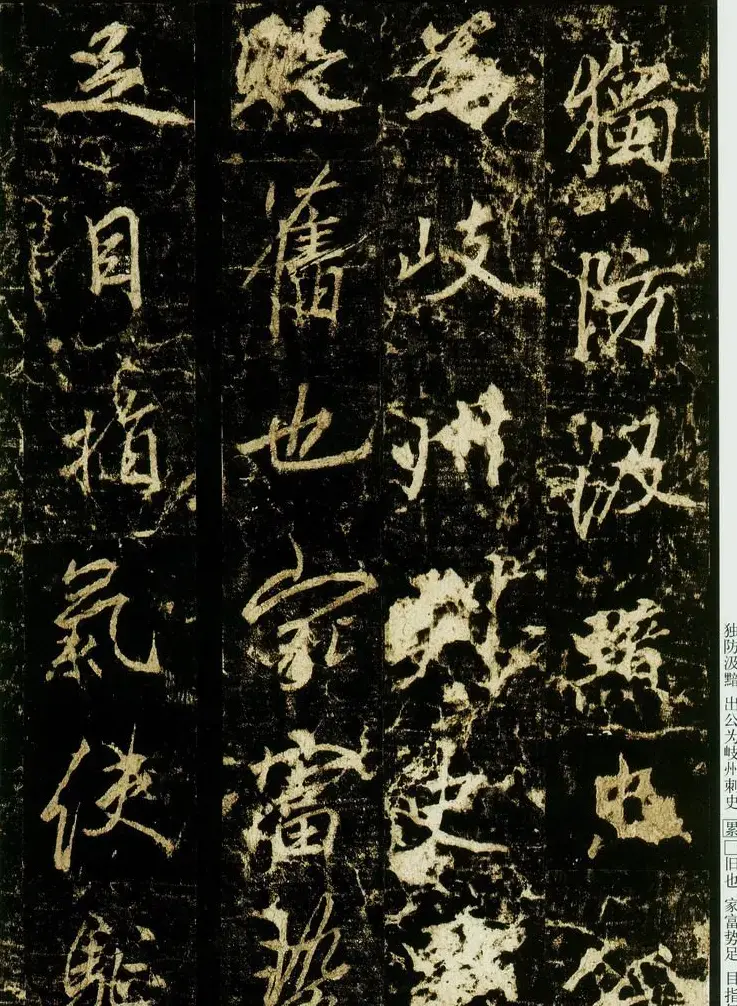 獨防汲黯出公
為岐州刺史
舊也家富勢
足目指氣使馳
独防汲黯 出公为岐州刺史 累□旧也 家富势足 目指